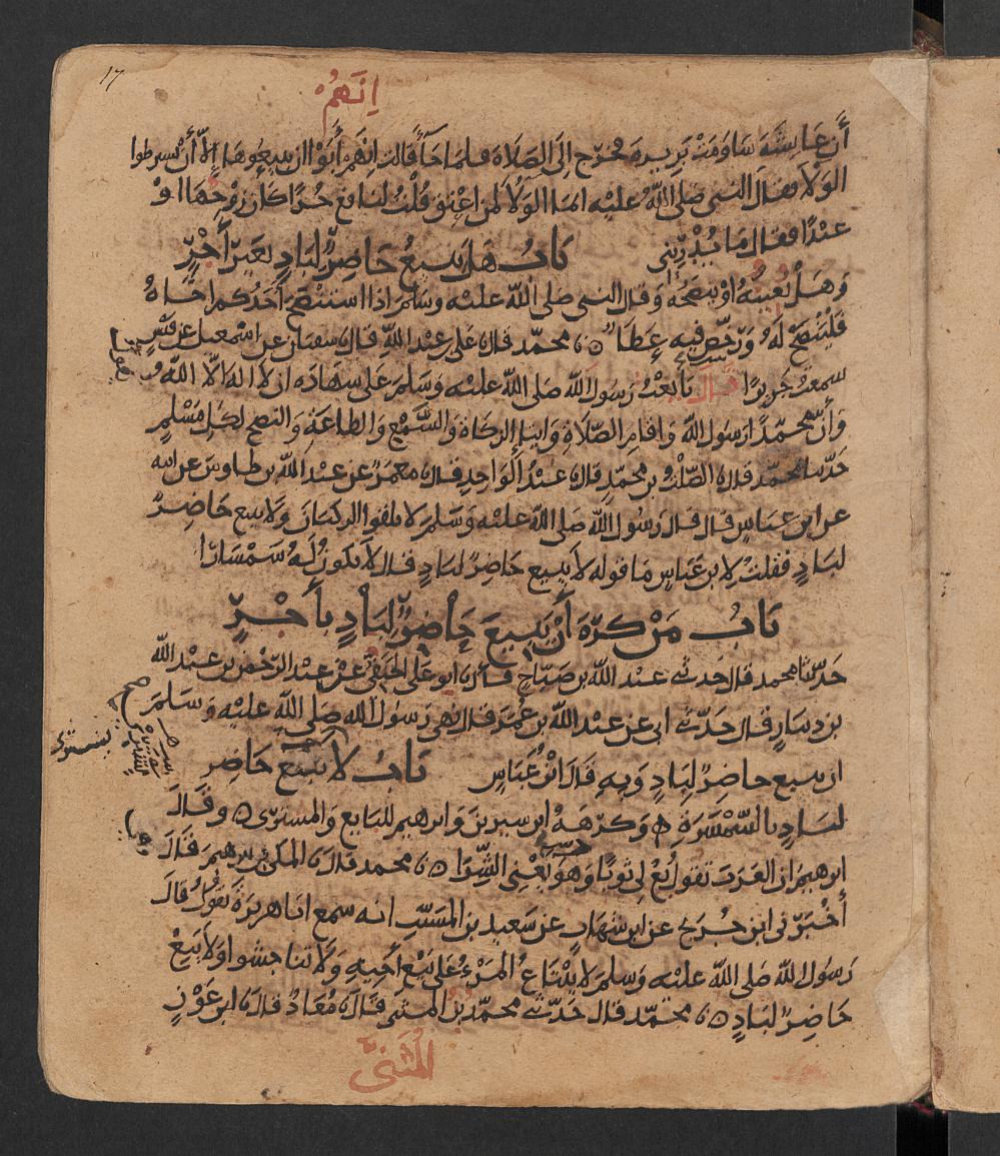 ١٧
إنهم
أن عايشة ساومت بريرة فخرج إلى الصلاة فلما جآ قالت إنهم أبوا ان يبيعوها إلّا أن يشترطوا
الولا فقال النبي صلى الله عليه انما الولا لمن اعتق قلت لنافع حرا كان زوجها او
عبدا فقال ما يدريني باب هل يبيع حاضر لباد بغير أجر
وهل يعينه او ينصحه وقال النبي صلى الله عليه وسلم اذا استنصح أحدكم اخاه
فلينصح له ورخص فيه عطا محمد قال علي بن عبد الله قال سفيان عن اسمعيل عن قيس
سمعت جريرا قال بايعت رسول الله صلى الله عليه وسلم على شهادة ان لا اله الا الله
وأن محمدا رسول الله واقام الصلاة وايتا الزكاة والسمع والطاعة والنصح لكل مسلم
حدثنا محمد قال الصلت بن محمد قال عبد الواحد قال معمر عن عبد الله بن طاوس عن ابيه
عن ابن عباس قال قال رسول الله صلى الله عليه وسلم لا تلقوا الركبان ولا يبيع حاضر
لباد فقلت لابن عباس ما قوله لا يبيع حاضر لباد قال لا يكون له سمسارا
باب من كره أن يبيع حاضر لباد بأجر
حدثنا محمد قال حدثني عبد الله بن صباح قال ابو علي الحنفي عن عبد الرحمن بن عبد الله
بن دينار قال حدثني ابي عن عبد الله بن عمر قال نهى رسول الله صلى الله عليه وسلم
ان يبيع حاضر لباد وبه قال ابن عباس باب لا يبيع حاضر
لباد بالسمسرة وكرهه ابن سيرين وابرهيم للبايع والمشتري وقال
إبرهيم ان العرب تقول بع لي ثوبا وهو يعني الشرا محمد قال المكي بن ابرهيم قال
أخبرني ابن جريج عن ابن شهاب عن سعيد بن المسيب انه سمع ابا هريرة يقول قال
رسول الله صلى الله عليه وسلم لا يبتاع المرء على بيع أخيه ولا تناجشوا ولا يبيع
حاضر لباد محمد قال حدثني محمد بن المثنى قال معاذ قال ابن عون
المثنى